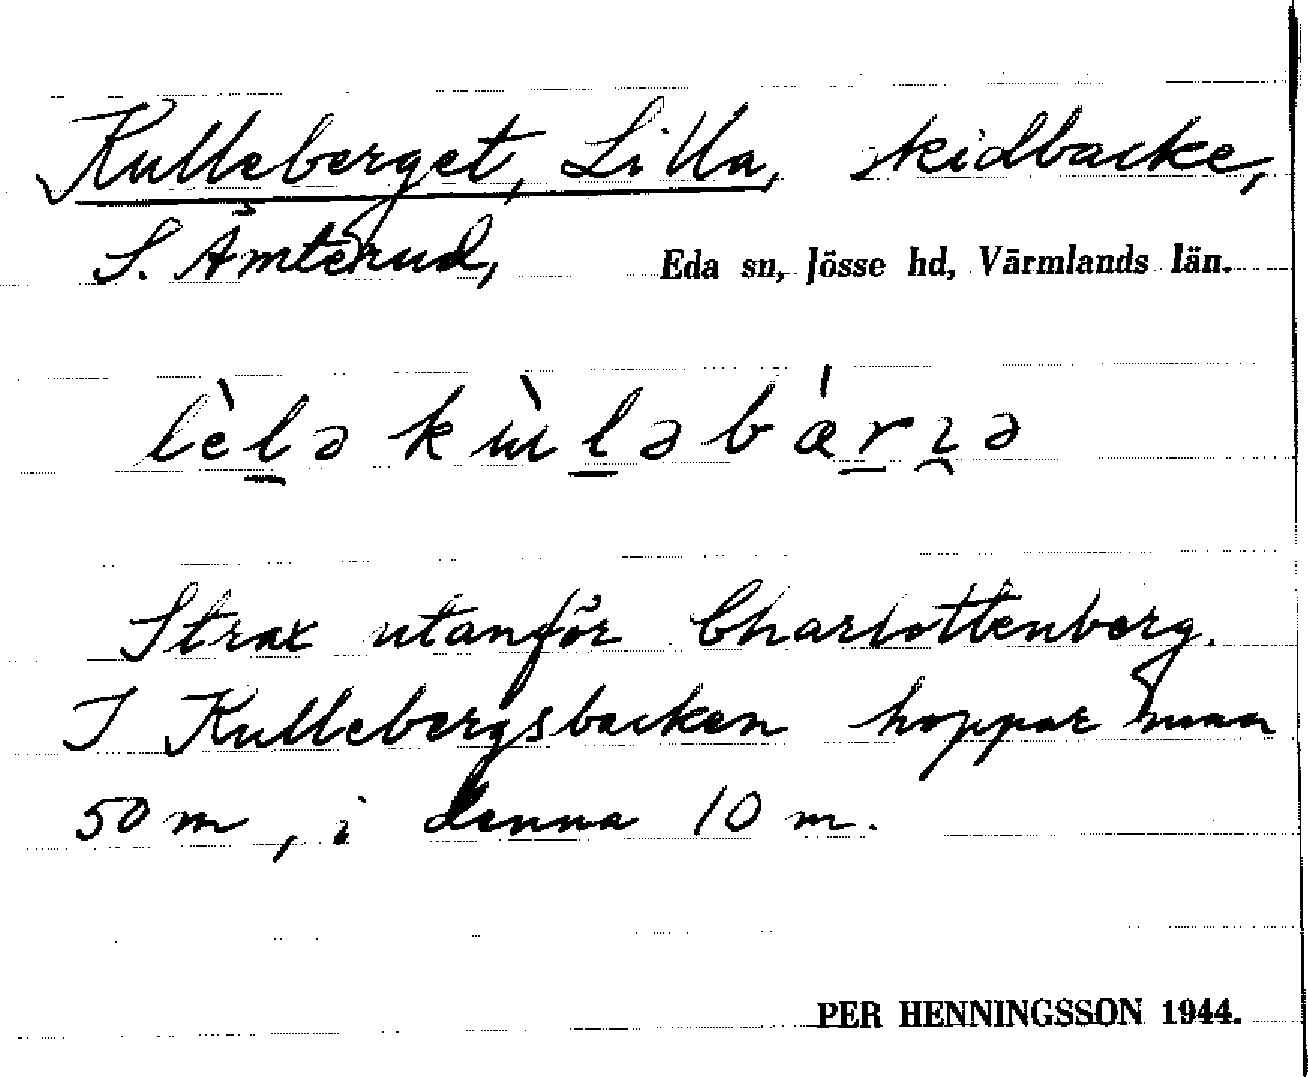 Kulleberget, Lilla, skidbacke,
S. Åmterud, Eda sn, Jösse hd, Värmlands län.
lèl̠ə kùl̠əbǽr̠ɿ̯ə
Strax utanför Charlottenberg.
I Kullebergsbacken hoppar man
50 m, i denna 10 m.
PER HENNINGSSON 1944.